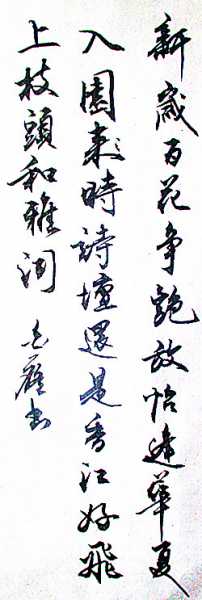 新歲百花争艷放恰逢華夏
入園來時詩壇還是香江好飛
上枝頭和雅詞